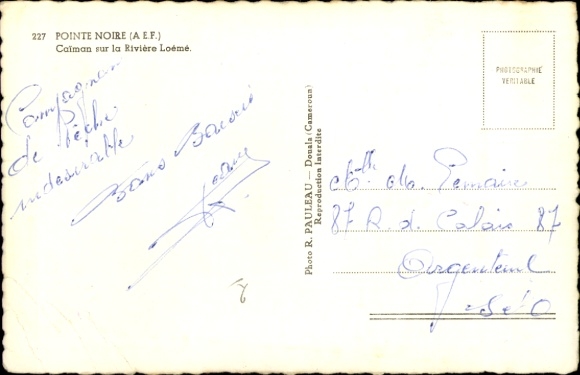 227 POINTE NOIRE (A E F.)
Caïman sur la Rivière Loémé.
Compagnon
de pêche
indésirable
Bons Baisers
Photo R. PAULEAU — Douala (Cameroun)
Reproduction Interdite
PHOTOGRAPHIE
VERITABLE
Lemaire
87 R. d. Calais 87
Argenteuil
S&O